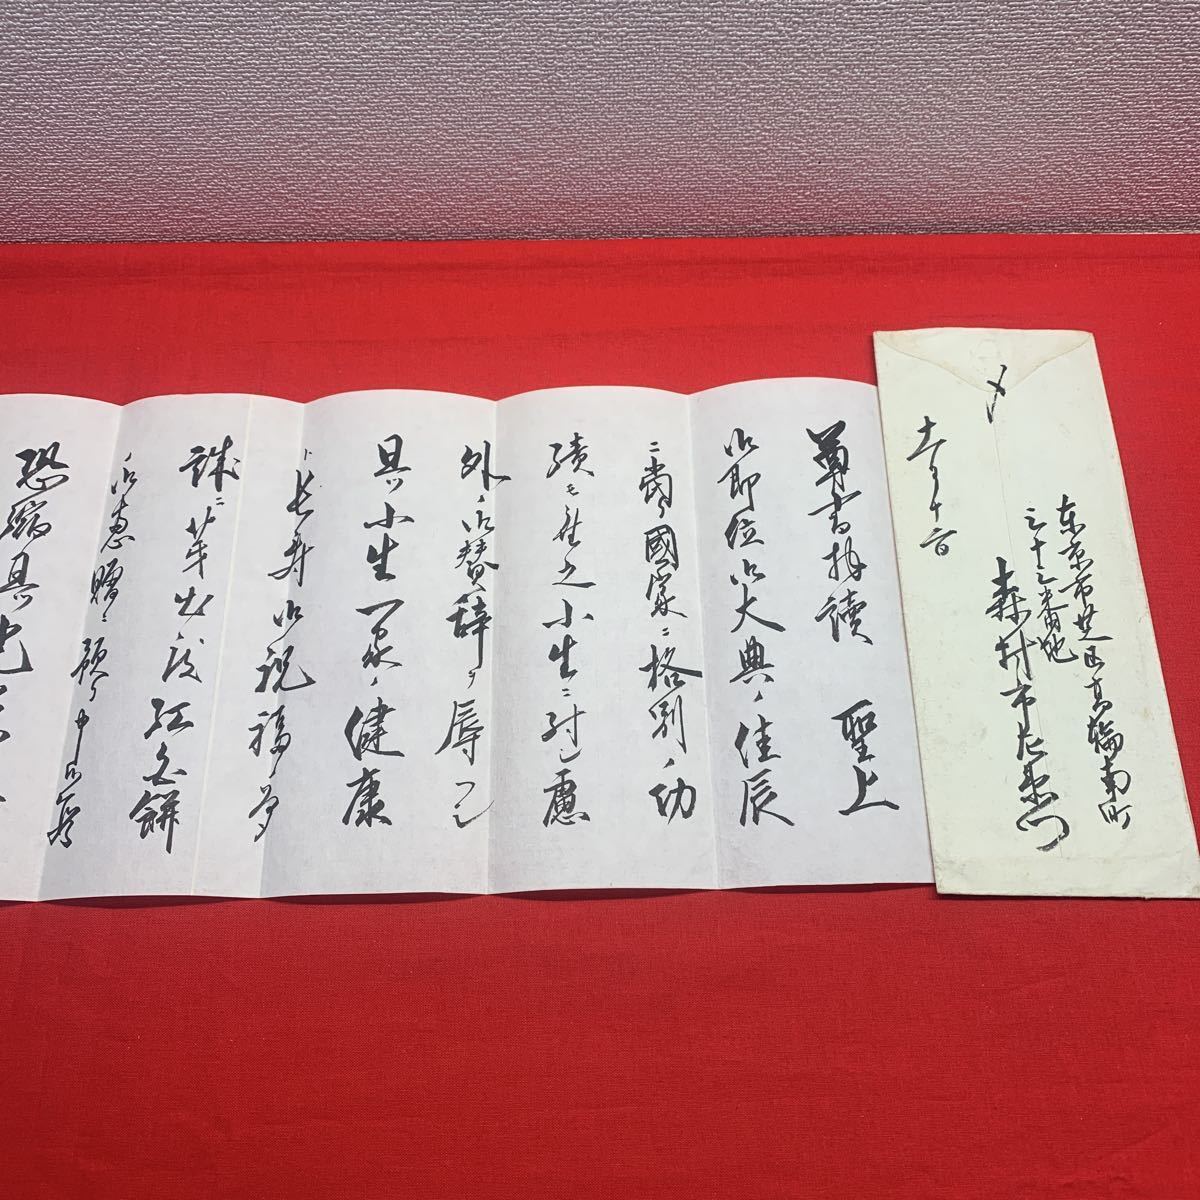 東京市芝区高輪南町
三十三番地
森村市左衛門
十一月十六日
〆
尊書拝読 聖上
御即位御大典ノ佳辰
ニ当リ國家ニ格別ノ功
績モ無之小生ニ対し慮
外ノ御賛辞ヲ辱フし
且ツ小生一家ノ健康
ト長寿御祝福
誠ニ芽出度紅白餅
ノ御恵贈ニ預リ申候
恐縮且ツ